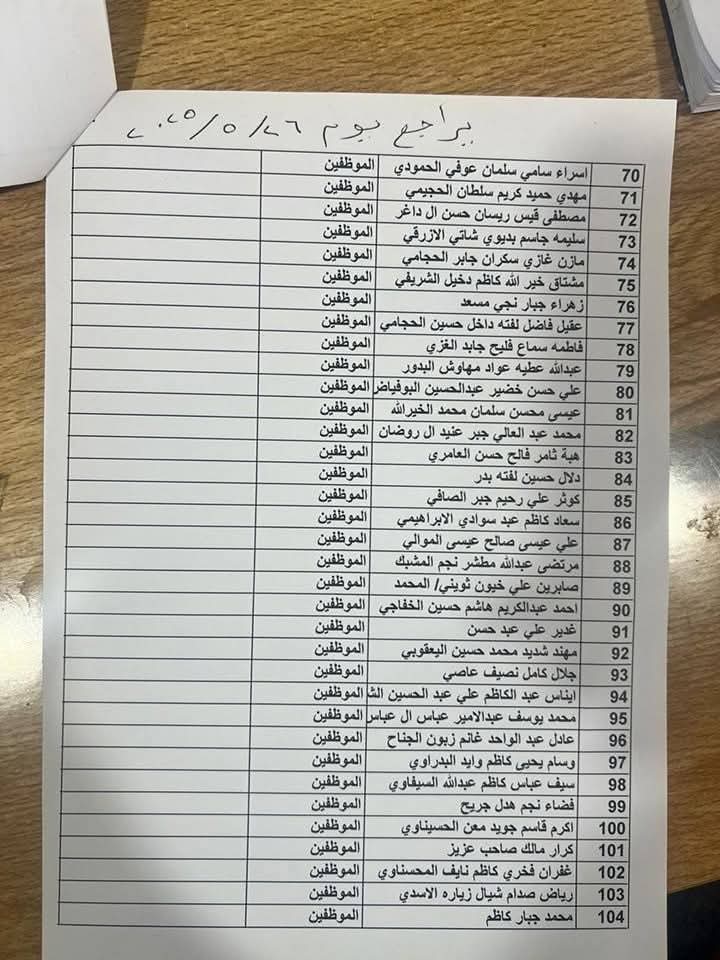 يراجع يوم ٢٦/٥/٢٠٢٥
70 اسراء سامي سلمان عوفي الحمودي الموظفين
71 مهدي حميد كريم سلطان الحجيمي الموظفين
72 مصطفى قيس ريسان حسن ال داغر الموظفين
73 سليمه جاسم بديوي شاتي الازرقي الموظفين
74 مازن غازي سكران جابر الحجامي الموظفين
75 مشتاق خير الله كاظم دخيل الشريفي الموظفين
76 زهراء جبار نجي مسعد الموظفين
77 عقيل فاضل لفته داخل حسين الحجامي الموظفين
78 فاطمه سماع فليح جابد الغزي الموظفين
79 عبدالله عطيه عواد مهاوش البدور الموظفين
80 علي حسن خضير عبدالحسين البوفياض الموظفين
81 عيسى محسن سلمان محمد الخيرالله الموظفين
82 محمد عبد العالي جبر عنيد ال روضان الموظفين
83 هبة ثامر فالح حسن العامري الموظفين
84 دلال حسين لفته بدر الموظفين
85 كوثر علي رحيم جبر الصافي الموظفين
86 سعاد كاظم عبد سوادي الابراهيمي الموظفين
87 علي عيسى صالح عيسى الموالي الموظفين
88 مرتضى عبدالله مطشر نجم المشبك الموظفين
89 صابرين علي خيون ثويني/ المحمد الموظفين
90 احمد عبدالكريم هاشم حسين الخفاجي الموظفين
91 غدير علي عبد حسن الموظفين
92 مهند شديد محمد حسين اليعقوبي الموظفين
93 جلال كامل نصيف عاصي الموظفين
94 ايناس عبد الكاظم علي عبد الحسين الموظفين
95 محمد يوسف عبدالامير عباس ال عباس الموظفين
96 عادل عبد الواحد غانم زبون الجناح الموظفين
97 وسام يحيى كاظم وايد البدراوي الموظفين
98 سيف عباس كاظم عبدالله السيفاوي الموظفين
99 فضاء نجم هدل جريح الموظفين
100 اكرم قاسم جويد معن الحسيناوي الموظفين
101 كرار مالك صاحب عزيز الموظفين
102 غفران فخري كاظم نايف المحسناوي الموظفين
103 رياض صدام شيال زياره الاسدي الموظفين
104 محمد جبار كاظم الموظفين